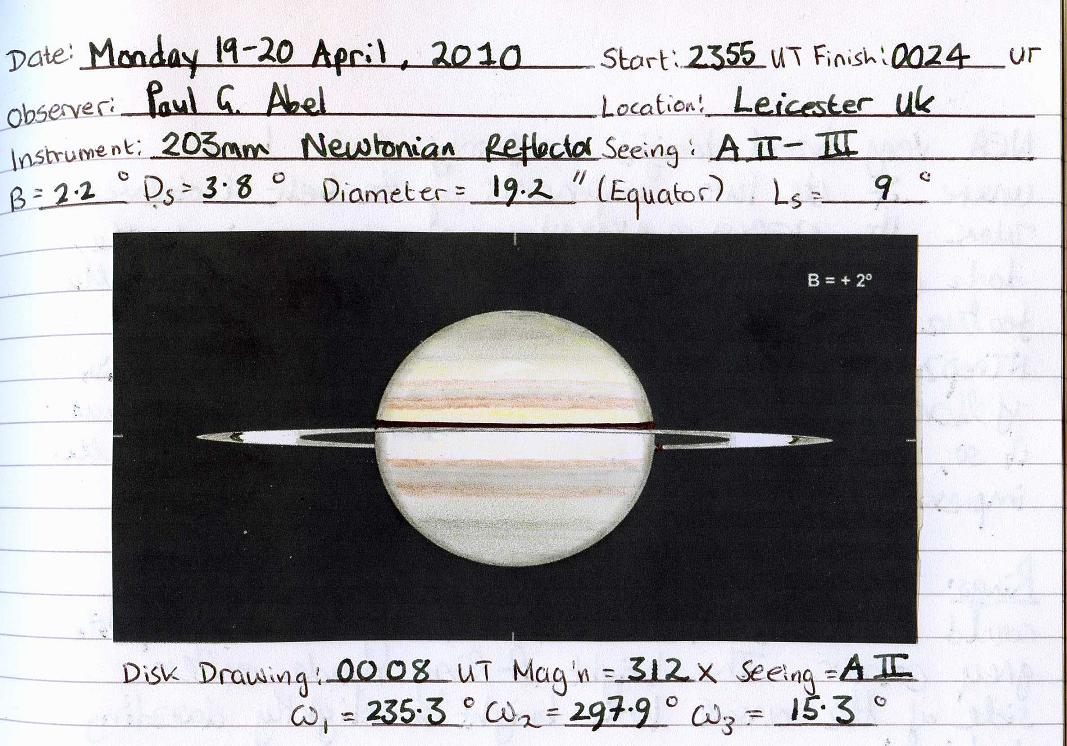 Date: Monday 19-20 April, 2010 Start: 2355 UT Finish: 0024 UT
Observer: Paul G. Abel Location: Leicester Uk
Instrument: 203mm Newtonian Reflector Seeing: A II - III
B = 2.2 ° Ds = 3.8 ° Diameter = 19.2 " (Equator) Ls = 9 °
B = + 2º
Disk Drawing: 0008 UT Mag'n = 312 x Seeing = A II
ω₁ = 235.3 ° ω₂ = 297.9 ° ω₃ = 15.3 °